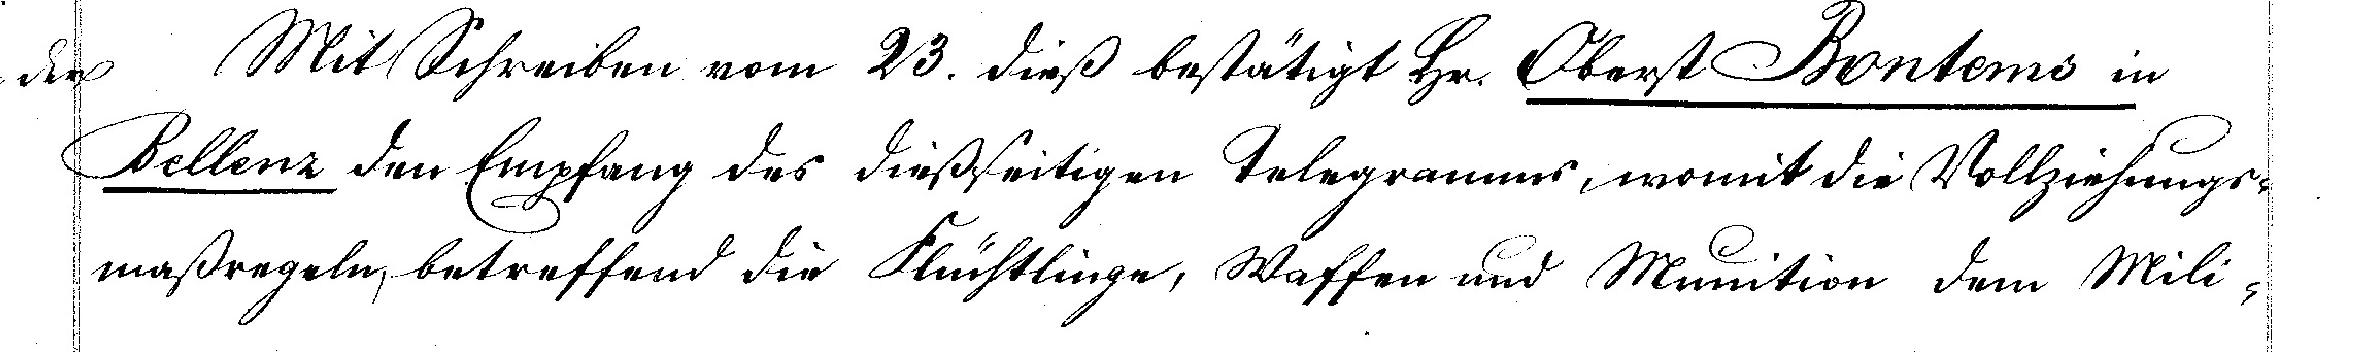 der Mit Schreiben vom 23. dieß bestätigt Hr. Oberst Bontems in
Bellenz den Empfang des dießseitigen Telegramms, womit die Vollziehungs-
maßregeln, betreffend die Flüchtlinge, Waffen und Munition dem Mili-